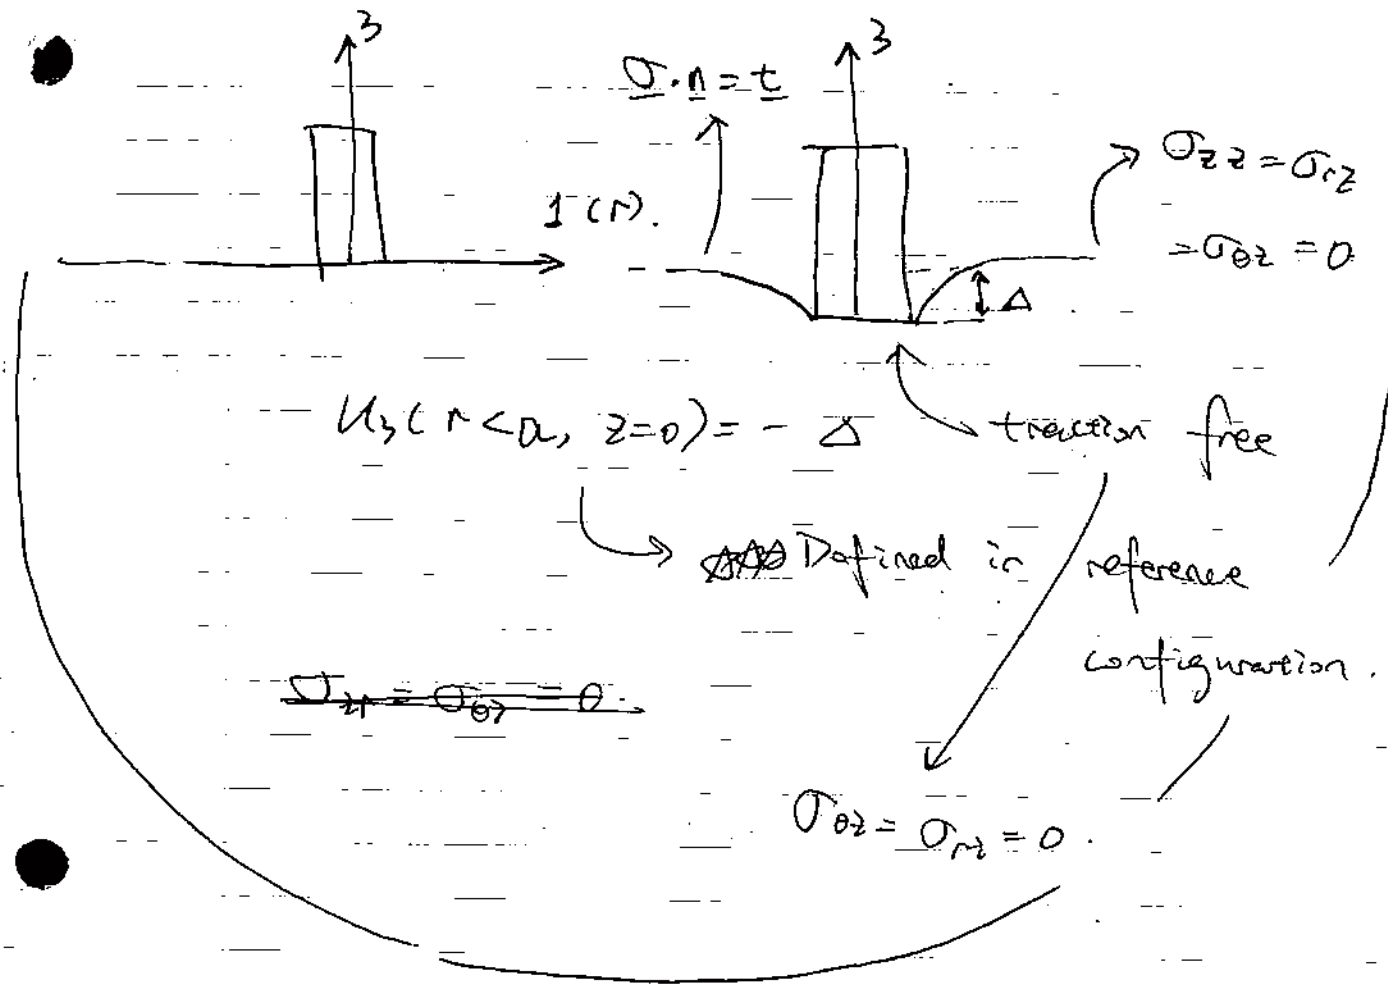 3
3
σ·n = t
σzz = σrz
= σθz = 0
1 (r).
Δ
u3 ( r < a, z=0) = - Δ
traction free
Defined in reference
configuration.
σzr = σθz = 0
σθz = σrz = 0 .